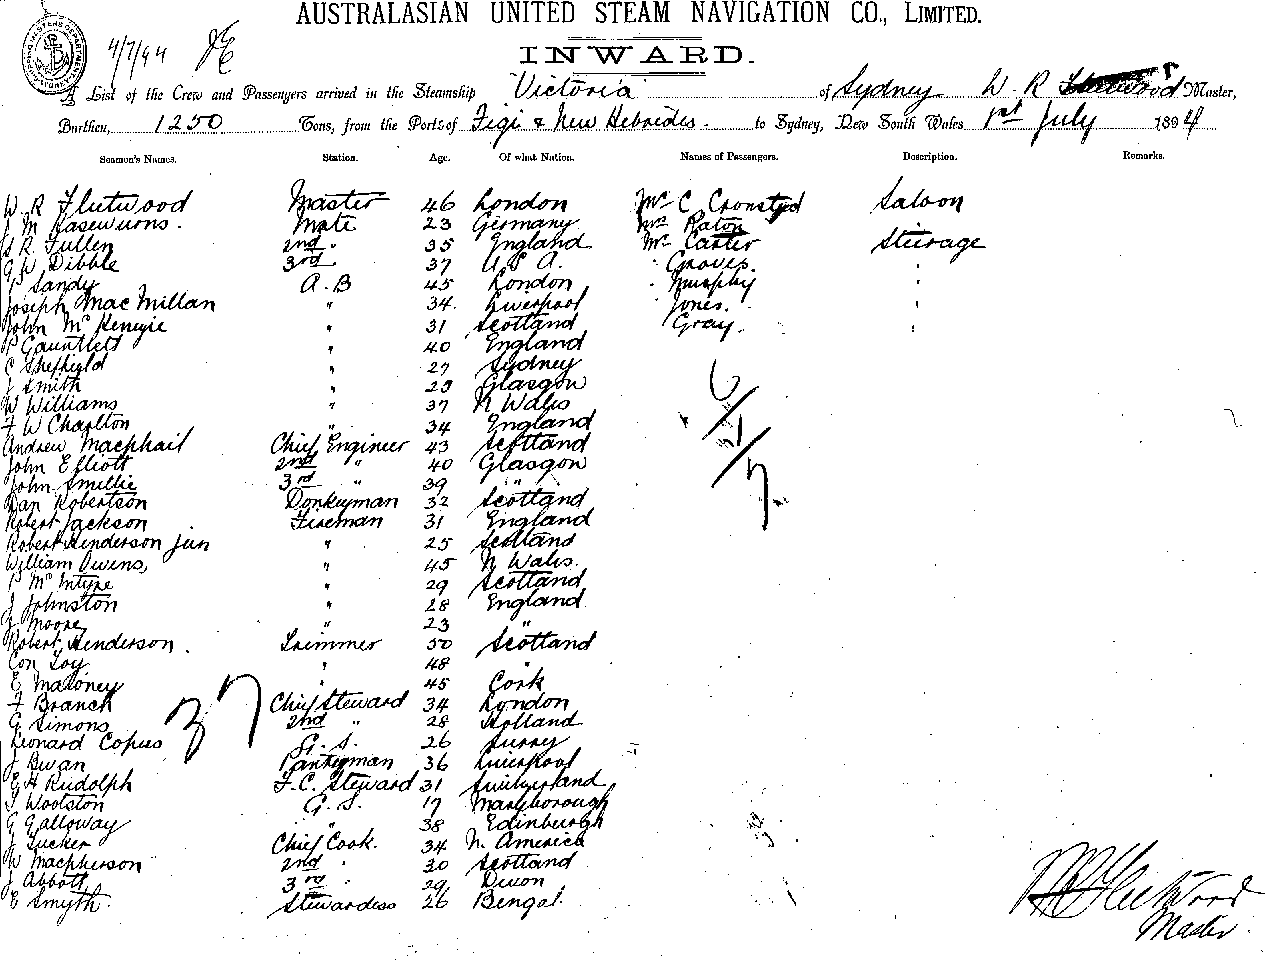 AUSTRALASIAN UNITED STEAM NAVIGATION CO., LIMITED.
INWARD.
4/7/94
A List of the Crew and Passengers arrived in the Steamship Victoria of Sydney W. R Master,
Burthen, 1250 Tons, from the Ports of Figi & New Hebrides. to Sydney, New South Wales 1st July 1894
Seamen's Names. Station. Age. Of what Nation. Names of Passengers. Description. Remarks.
W R Fleetwood Master 46 London Mr C Saloon
J M Mate 23 Germany Mrs Paton "
R Fullen 2nd " 35 England Mr Carter Steerage
G W Dibble 3rd " 37 U S A. Groves. "
J Sandy A.B 45 London Murphy "
Joseph MacMillan " 34 Liverpool Jones. "
John McKenzie " 31 Scotland Gray. "
P Gauntlett " 40 England
C Sheffield " 27 Sydney
J Smith " 25 Glasgow
W Williams " 37 N Wales
F W Charlton " 34 England
Andrew Macphail Chief Engineer 43 Scotland
John Elliott 2nd " 40 Glasgow
John Smillie 3rd " 39 " "
Dan Robertson Donkeyman 32 Scotland
Robert Jackson Fireman 31 England
Robert Henderson jun " 25 Scotland
William Owens, " 45 N Wales.
P McIntyre " 29 Scotland
J Johnston " 28 England
J Moore " 23 "
Robert Henderson. Trimmer 50 Scotland
Con Toy " 48 "
E Maloney " 45 Cork
F Branch Chief Steward 34 London
G Simons 2nd " 28 Holland
Leonard Copus G. S. 26 Surrey
J Bwan Pantryman 36 Liverpool
E H Rudolph F.C. Steward 31 Switzerland
S Woolston G. S. 17 Maryborough
G Galloway " 38 Edinburgh
J Tucker Chief Cook. 34 N. America
W Macpherson 2nd " 30 Scotland
J Abbott 3rd " 29 Devon
E Smyth. Stewardess 26 Bengal.
6/1/7.
37
Fleetwood
Master